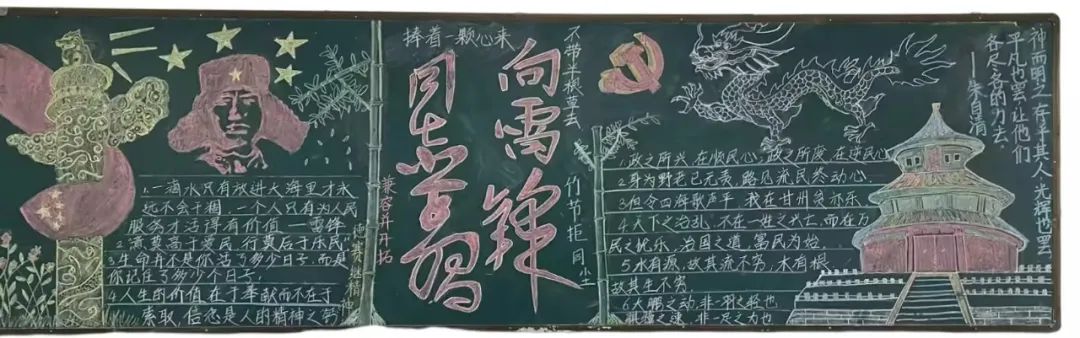 捧着一颗心来
不带半根草去
向雷锋
同志学习
兼容并开拓
竹节拒同尘
德赛继精神
1.一滴水只有放进大海里才永
远不会干涸,一个人只有为人民
服务才活得有价值 —雷锋
2.意莫高于爱民,行莫后于乐民"
3.生命并不是你活了多少日子,而是
你记住了多少个日子,
4.人生的价值,在于奉献而不在于
索取,信念是人的精神之钙
1.政之所兴,在顺民心,政之所废,在逆民心
2.身为野老已无责,路见流民终动心
3.但令四海歌声平,我在甘州贫亦乐
4.天下之治乱,不在一姓之兴亡,而在万
民之忧乐,治国之道,富民为始
5.水有源,故其流不穷,木有根
故其生不穷
6.大鹏之动,非一羽之轻也
骐骥之速,非一足之力也
神而明之,存乎其人,光辉也罢
平凡也罢让他们
各尽各的力去
——朱自清